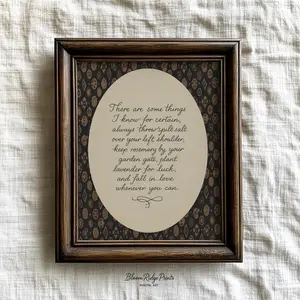 There are some things
I know for certain,
always throw spilt salt
over your left shoulder,
keep rosemary by your
garden gate, plant
lavender for luck,
and fall in love
whenever you can.
Bloom Ridge Prints